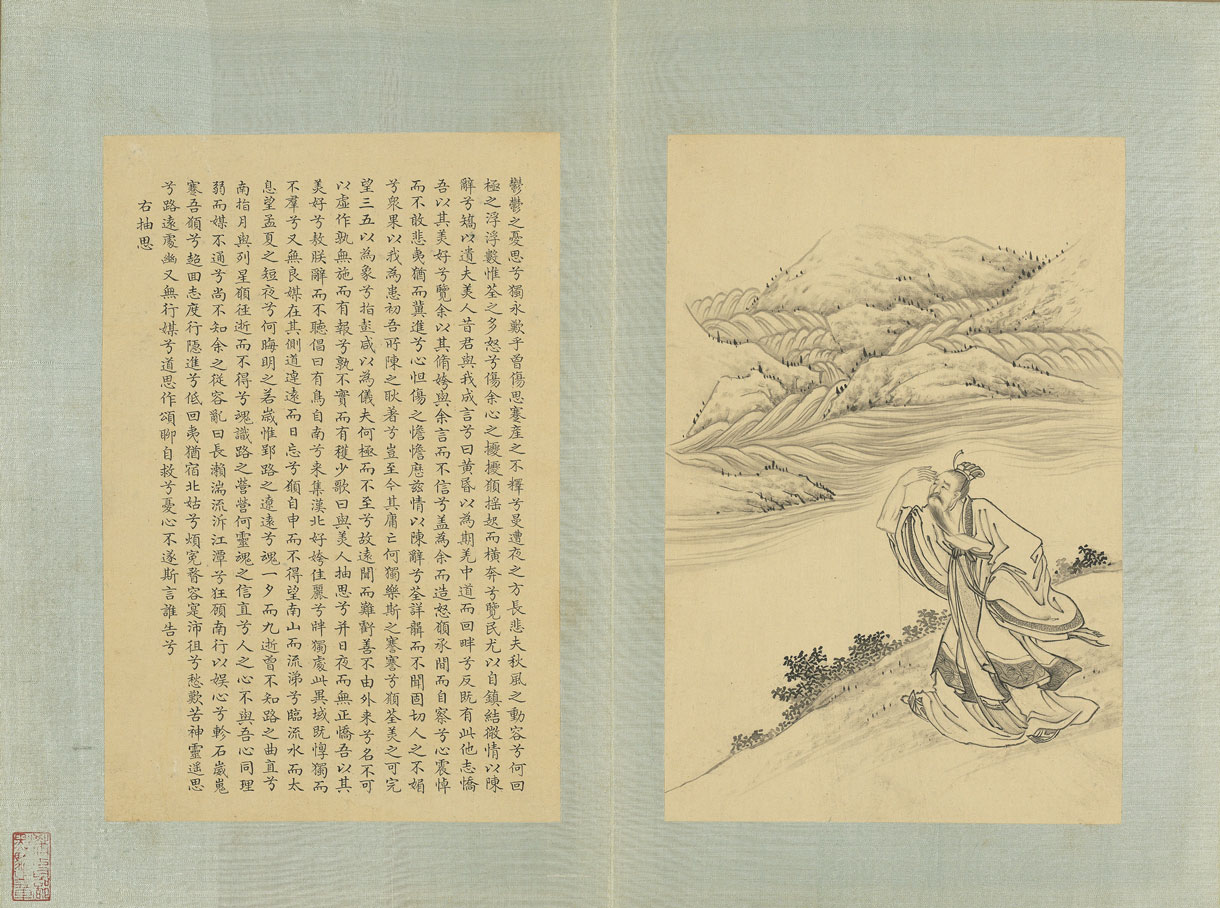 鬱鬱之憂思兮獨永歎乎曾傷思蹇産之不釋兮曼遭夜之方長悲夫秋風之動容兮何回
極之浮浮數惟荃之多怒兮傷余心之懮懮願搖起而橫奔兮覽民尤以自鎮結微情以陳
辭兮矯以遺夫美人昔君與我成言兮曰黄昏以為期羌中道而回畔兮反既有此他志憍
吾以其美好兮覽余以其脩姱與余言而不信兮盖為余而造怒願承間而自察兮心震悼
而不敢悲夷猶而冀進兮心怛傷之憺憺歷兹情以陳辭兮荃詳聾而不聞固切人之不媚
兮衆果以我為患初吾所陳之耿著兮豈至今其庸亡何獨樂斯之謇謇兮願荃美之可完
望三五以為象兮指彭咸以為儀夫何極而不至兮故遠聞而難虧善不由外来兮名不可
以虛作孰無施而有報兮孰不實而有穫少歌曰與美人抽思兮并日夜而無正憍吾以其
美好兮敖朕辭而不聽倡曰有鳥自南兮来集漢北好姱佳麗兮牉獨處此異域既惸獨而
不羣兮又無良媒在其側道逴遠而日忘兮願自申而不得望南山而流涕兮臨流水而太
息望孟夏之短夜兮何晦明之若歲惟郢路之遼遠兮魂一夕而九逝曾不知路之曲直兮
南指月與列星願徑逝而不得兮魂識路之營營何靈魂之信直兮人之心不與吾心同理
弱而媒不通兮尚不知余之從容亂曰長瀨湍流泝江潭兮狂顧南行以娛心兮軫石崴嵬
蹇吾願兮超回志度行隱進兮低回夷猶宿北姑兮煩冤瞀容寔沛徂兮愁歎苦神靈遥思
兮路遠處幽又無行媒兮道思作頌聊自救兮憂心不遂斯言誰告兮
右抽思